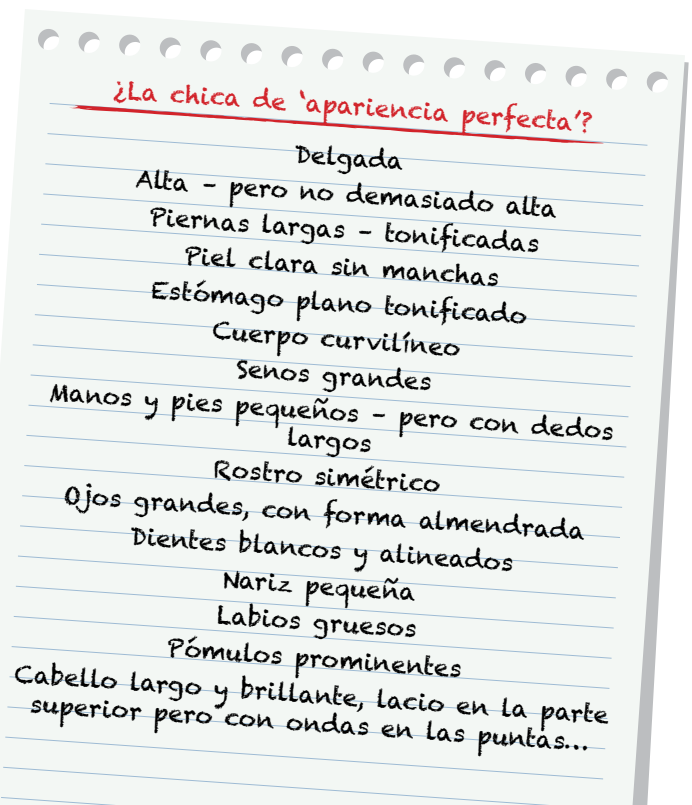 ¿La chica de ‘apariencia perfecta’?
Delgada
Alta – pero no demasiado alta
Piernas largas – tonificadas
Piel clara sin manchas
Estómago plano tonificado
Cuerpo curvilíneo
Senos grandes
Manos y pies pequeños – pero con dedos
largos
Rostro simétrico
Ojos grandes, con forma almendrada
Dientes blancos y alineados
Nariz pequeña
Labios gruesos
Pómulos prominentes
Cabello largo y brillante, lacio en la parte
superior pero con ondas en las puntas...